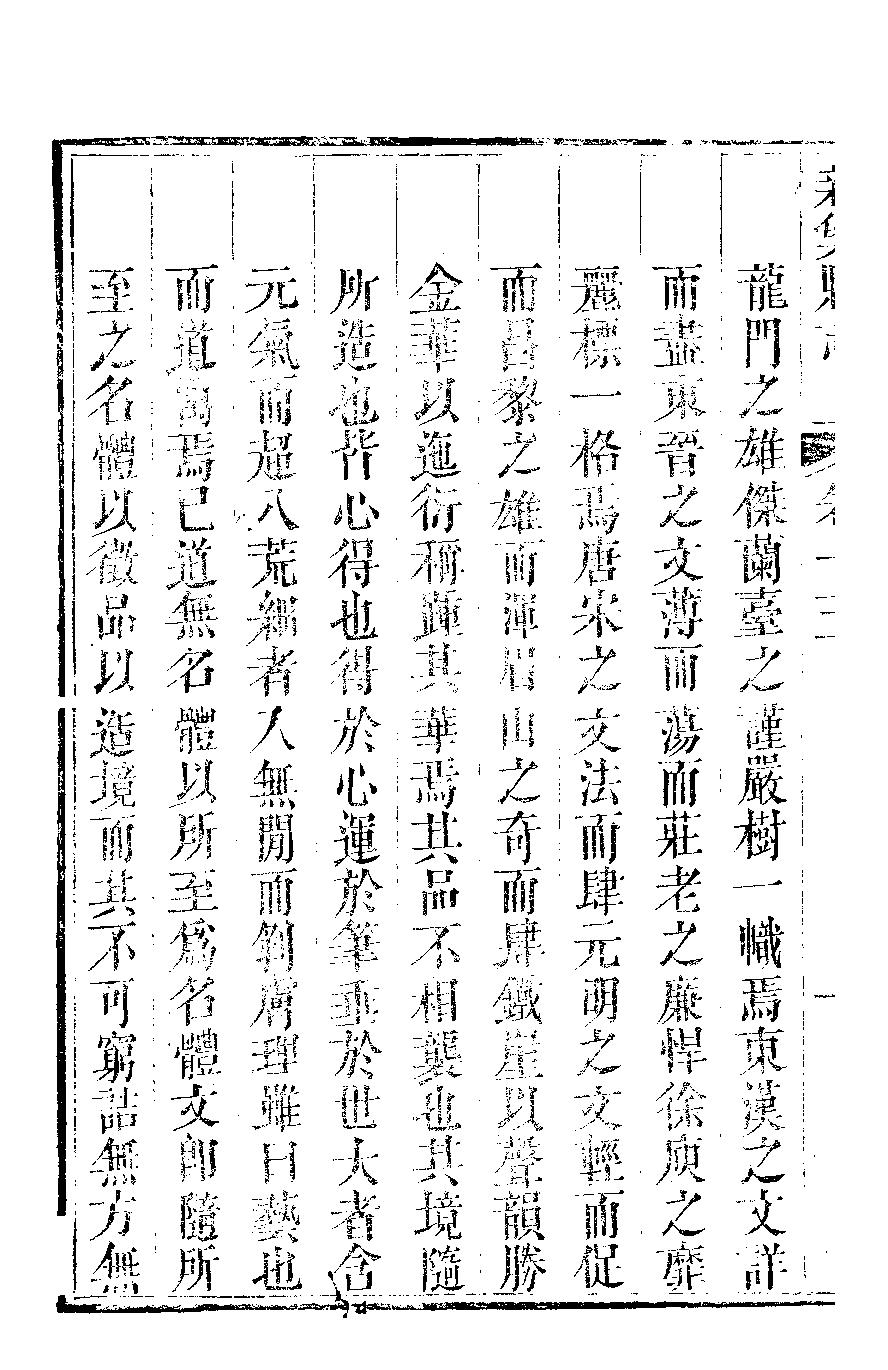 龍門之雄傑蘭臺之謹嚴樹一幟焉東漢之文詳
而盡東晉之文薄而蕩而莊老之廉悍徐庾之靡
麗標一格焉唐宋之文法而肆元明之文輕而促
而昌黎之雄而渾眉山之奇而肆鐵崖以聲韻勝
金華以迤衍稱踵其華焉其品不相襲也其境隨
所造也皆心得也得於心運於筆垂於世大者含
元氣而超八荒細者入無閒而劀膚理雖曰藝也
而道寓焉已道無名體以所至爲名體文卽隨所
至之名體以徵品以造境而其不可窮詰無方無